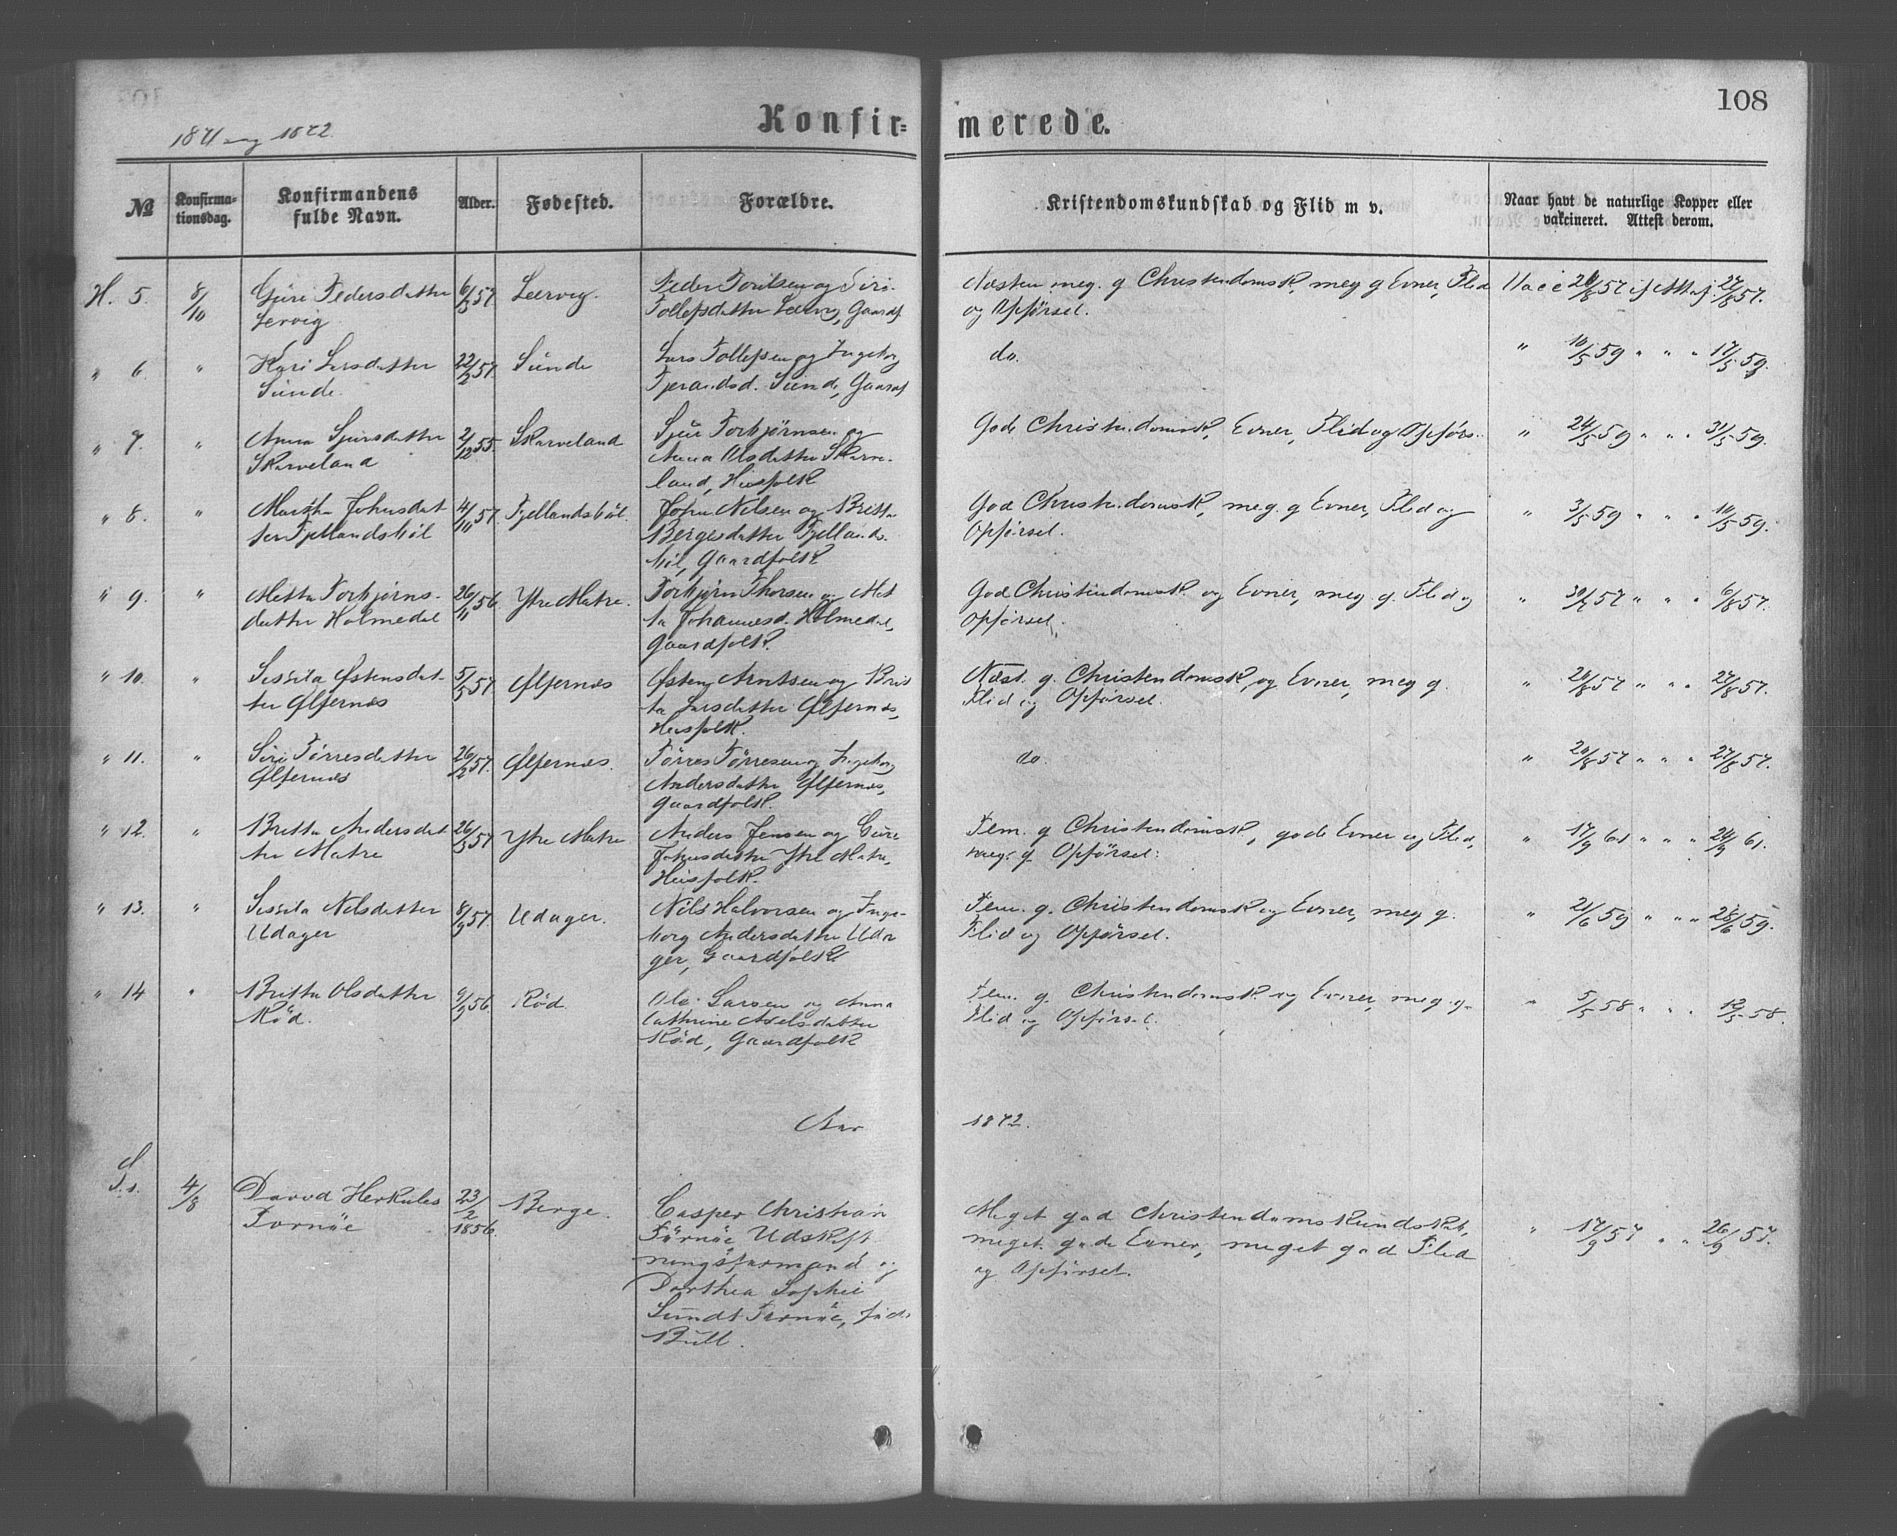 108
1871 og 1872.
Konfir= merede.
№ Konfirma-tionsdag. Konfirmandens fulde Navn. Alder. Fødested. Forældre. Kristendomskundskab og Flid m v. Naar havt de naturlige Kopper eller vakcineret. Attest derom.
H. 5. 8/10 Guri Pedersdatter 6/3 57 Leervig. Peder Poulsen og Siri Næsten meg. g Christendomsk, meg g Evner, Flid Vacc 20/8 57 if Att. af 27/8 57.
Lervig Tollefsdatter Leervig, Gaardf og Opførsel.
" 6. " Kari Larsdatter 22/2 57. Sunde Lars Tollefsen og Ingeborg do. " 10/5 59 " " " 17/5 59.
Sunde. Tjerandsd. Sunde, Gaardf
" 7. " Anna Sjursdatter 2/12 55. Skarveland Sjur Torbjørnsen og Gode Christendomsk, Evner, Flid og Opførs. " 24/5 59 " " " 31/5 59.
Skarveland Anna Olsdatter Skarve-
land, Husfolk
" 8. " Martha Johnsdat 4/11 57. Fjellandsbøl. John Nilsen og Britta God Christendomsk, meg. g Evner, Flid og " 3/5 59 " " " 10/5 59.
ter Fjellandsbøl Bergesdatter Fjellands Opførsel.
bøl, Gaardfolk
" 9. " Metta Torbjørns- 26/11 56 Ytre Matre. Torbjørn Thorsen og Met God Christendomsk. og Evner, meg. g. Flid og " 30/7 57 " " " 6/8 57.
datter Holmedal ta Johannesd. Holmedal, Opførsel.
Gaardfolk.
" 10. " Sessela Østensdat- 5/5 57 Ølfernæs Østen Arntsen og Brit Næst. g. Christendomsk, og Evner, meg g. " 20/8 57 " " " 27/8 57.
ter Ølfernæs ta Larsdatter Ølfernæs, Flid og Opførsel.
Husfolk.
" 11. " Siri Tørresdatter 26/2 57. Ølfernæs. Tørres Tørresen og Ingeborg do. " 20/8 57 " " " 27/8 57.
Ølfernæs Andersdatter Ølfernæs,
Gaardfolk.
" 12. " Britta Andersdat 26/5 57 Ytre Matre Anders Jensen og Guri Tem. g Christendomsk, gode Evner og Flid, " 17/9 61 " " " 24/9 61.
ter Matre Johnsdatter Ytre Matre, meg. g Opførsel.
Husfolk.
" 13. " Sessela Nilsdatter 8/9 57. Udager. Nils Halvorsen og Inge- Tem. g. Christendomsk og Evner, meg g. " 21/6 59 " " " 28/6 59.
Udager borg Andersdatter Uda Flid og Opførsel.
ger, Gaardfolk
" 14 " Britta Olsdatter 9/9 56. Rød. Ole Larsen og Anna Tem. g. Christendomsk og Evner, meg. g. " 5/5 58 " " " 12/5 58.
Rød. Cathrine Axelsdatter Flid og Opførsel.
Rød, Gaardfolk
Aar 1872.
4/8 David Herkules 23/2 1856. Berge. Casper Christian Meget god Christendomskundskab, " 17/9 57 " " 26/9 57.
Tornøe Tornøe Udskift meget gode Evner, meget god Flid
ningsformand og og Opførsel.
Dorthea Sophie
Sundt Tornøe, født
Bull.